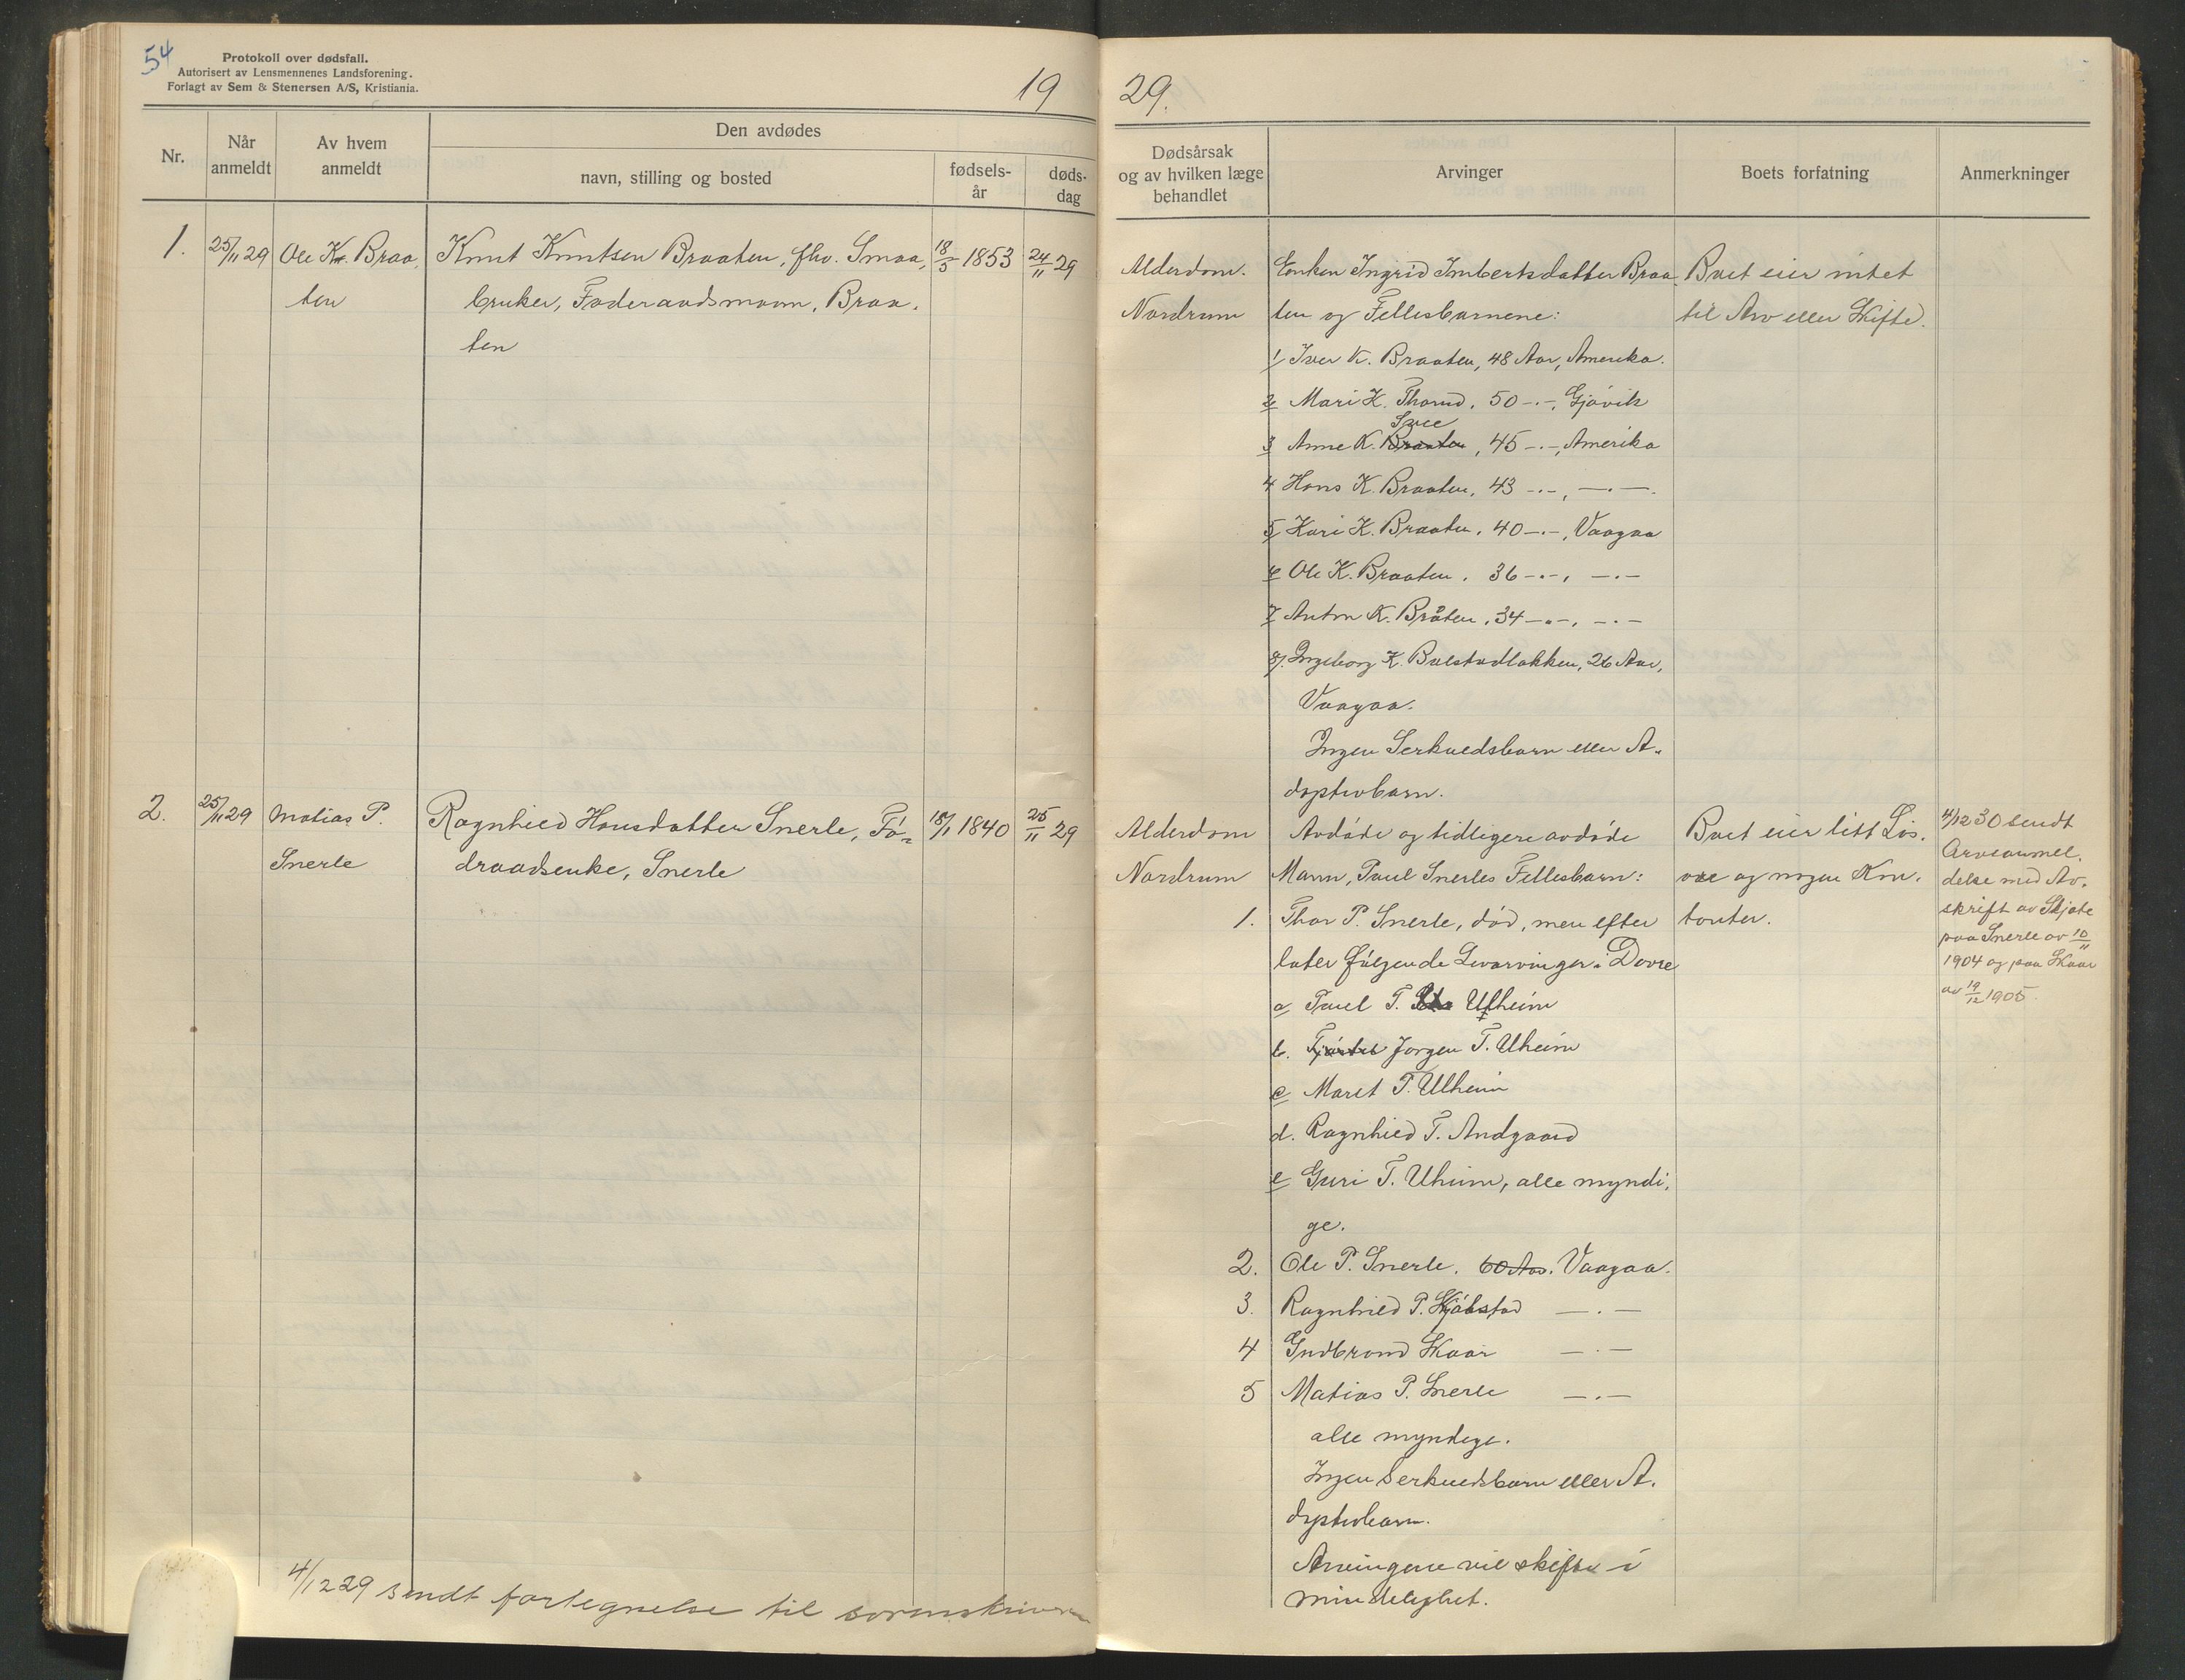 54
Protokoll over dødsfall.
Autorisert av Lensmennenes Landsforening.
Forlagt av Sem & Stenersen A/S, Kristiania.
19
29.
Nr.
Når anmeldt
Av hvem anmeldt
Den avdødes
navn, stilling og bosted
fødsels-år
døds-dag
Dødsårsak
og av hvilken læge
behandlet
Arvinger
Boets forfatning
Anmerkninger
1.
25/11 29
Ole K. Braa,
ten
Knut Knutsen Braaten, fhv. Smaa,
bruker, Føderaadsmann, Braa,
ten
18/5 1853
24/11 29
Alderdom.
Nordrum
Enken Ingrid Imbertsdatter Braa,
ten og Fellesbarnene:
1/ Iver K. Braaten, 48 Aar, Amerika.
2/ Mari K. Thorud, 50 -.-, Gjøvik
3/ Anne K. Braaten, 45 -.-, Amerika
4/ Hans K. Braaten, 43 -.-, -.-.
5/ Kari K. Braaten, 40 -.-, Vaagaa
6/ Ole K. Braaten, 36 -.-, -.-
7/ Anton K. Bråten, 34 -.-, -.-
8/. Ingeborg K. Bulstadløkken, 26 Aar,
Vaagaa.
Ingen Serkuldsbarn eller A-
doptivbarn.
Boet eier intet
til Arv eller Skifte.
2.
25/11 29
Matias P.
Snerle
Ragnhild Hansdatter Snerle, Fø-
draadsenke, Snerle
18/1 1840
25/11 29
Alderdom
Nordrum
Avdøde og tidligere avdøde
Mann, Paul Snerles Fellesbarn:
1. Thor P. Snerle, død, men efter
later følgende Livarvinger i Dovre
a Paul T. Ulheim
b. Jørgen T. Ulheim
c Marit T. Ulheim
d. Ragnhild T. Andgaard
e Guri T. Ulheim, alle myndi,
ge.
2. Ole P. Snerle, 60 Aar. Vaagaa.
3. Ragnhild P. Skjølstad -.-
4 Gudbrand Skaar -.-
5 Matias P. Snerle -.-
alle myndige.
Ingen Serkuldsbarn eller A.
doptivbarn.
Arvingene vil skifte i
mindelighet.
Boet eier litt Løs.
øre og nogen Kon,
tanter.
4/12 30 sendt
Arveanmel,
delse med Av,
skrift av Skjøte
paa Snerle av 10/11
1904 og paa Skaar
av 19/12 1905.
4/12 29 sendt fortegnelse til sorenskriveren